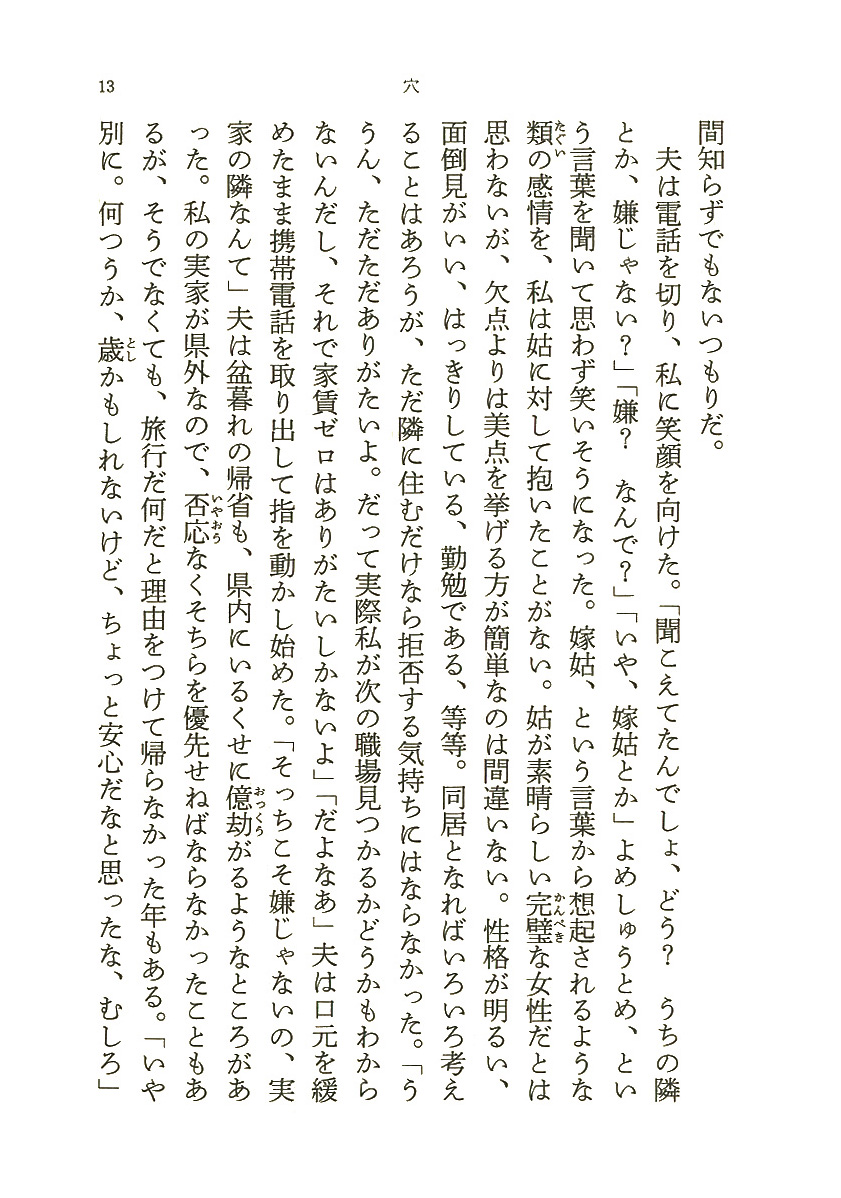 13
穴
間知らずでもないつもりだ。
　夫は電話を切り、私に笑顔を向けた。「聞こえてたんでしょ、どう？　うちの隣
とか、嫌じゃない？」「嫌？　なんで？」「いや、嫁姑とか」よめしゅうとめ、とい
う言葉を聞いて思わず笑いそうになった。嫁姑、という言葉から想起されるような
類の感情を、私は姑に対して抱いたことがない。姑が素晴らしい完璧な女性だとは
思わないが、欠点よりは美点を挙げる方が簡単なのは間違いない。性格が明るい、
面倒見がいい、はっきりしている、勤勉である、等等。同居となればいろいろ考え
ることはあろうが、ただ隣に住むだけなら拒否する気持ちにはならなかった。「う
うん、ただただありがたいよ。だって実際私が次の職場見つかるかどうかもわから
ないんだし、それで家賃ゼロはありがたいしかないよ」「だよなあ」夫は口元を緩
めたまま携帯電話を取り出して指を動かし始めた。「そっちこそ嫌じゃないの、実
家の隣なんて」夫は盆暮れの帰省も、県内にいるくせに億劫がるようなところがあ
った。私の実家が県外なので、否応なくそちらを優先せねばならなかったこともあ
るが、そうでなくても、旅行だ何だと理由をつけて帰らなかった年もある。「いや
別に。何つうか、歳かもしれないけど、ちょっと安心だなと思ったな、むしろ」
たぐい
かんぺき
おっくう
いやおう
とし